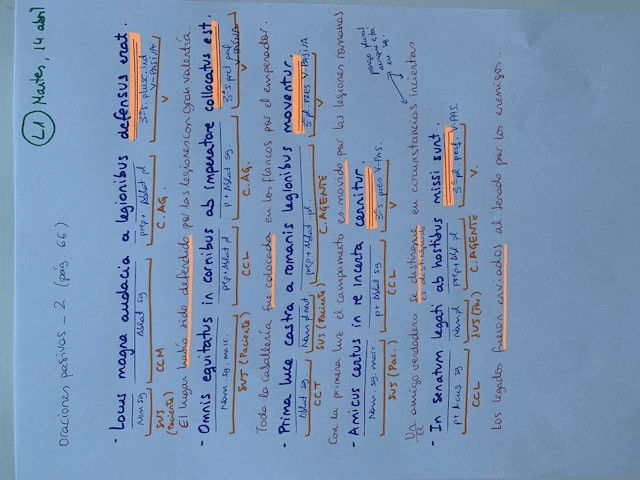 L1 Martes, 14 abril
Oraciones pasivas - 2 (pág 66)
- Locus magna audacia a legionibus defensus erat.
Nom sg Ablat sg prep + Ablat pl 3ª s. plusc. ind V. PASIVA
SUJ (Paciente) CCM C. AG. V
El lugar había sido defendido por las legiones con gran valentía.
- Omnis equitatus in cornibus ab imperatore colocatus est.
Nom. sg. masc. prep + Ablat pl p + Ablat sg. 3ª s. pret. perf. V PASIVA
SUJ (Paciente) CCL C. AG. V
Toda la caballería fue colocada en los flancos por el emperador.
- Prima luce castra a romanis legionibus moventur.
Ablat sg Nom pl neut prep + Ablat pl 3ª pl PRES V-PASIVA
CCT SUJ (Paciente) C. AGENTE V
Con la primera luz el campamento es movido por las legiones romanas
pongo plural aunque esta en sg.
- Amicus certus in re incerta cernitur.
Nom. sg. masc. p + Ablat sg 3ª s. pres V-PAS.
SUJ (Pac.) CCL V
Un amigo verdadero se distingue en circunstancias inciertas
es distinguido
- In senatum legati ab hostibus missi sunt.
p + Acus sg Nom pl prep + Abl pl 3ª pl perf. V-PAS.
CCL SUJ (Pac) C. AGENTE V.
Los legados fueron enviados al senado por los enemigos.